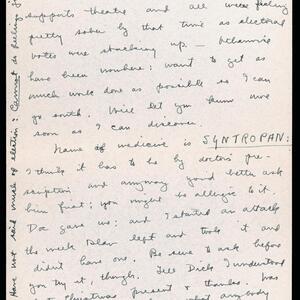 supports theatre and all were feeling
pretty sober by that time as electoral
votes were stacking up —
have been nowhere: want to get as
much work done as possible so I can
go south. Will let you know more
soon as I can discover.
Name of medicine is SYNTROPAN:
I think it has to be by doctors' pre-
scription and anyway you'd better ask
him first; you might be allergic to it.
Doc gave us: and I started an attack
the week Dear left and took it and
didn't have one. Be sure to ask before
you try it, though. Tell Dick I understood
Christmas present & thanks. Was
what anybody
Have not said much of election: Cannot feelings